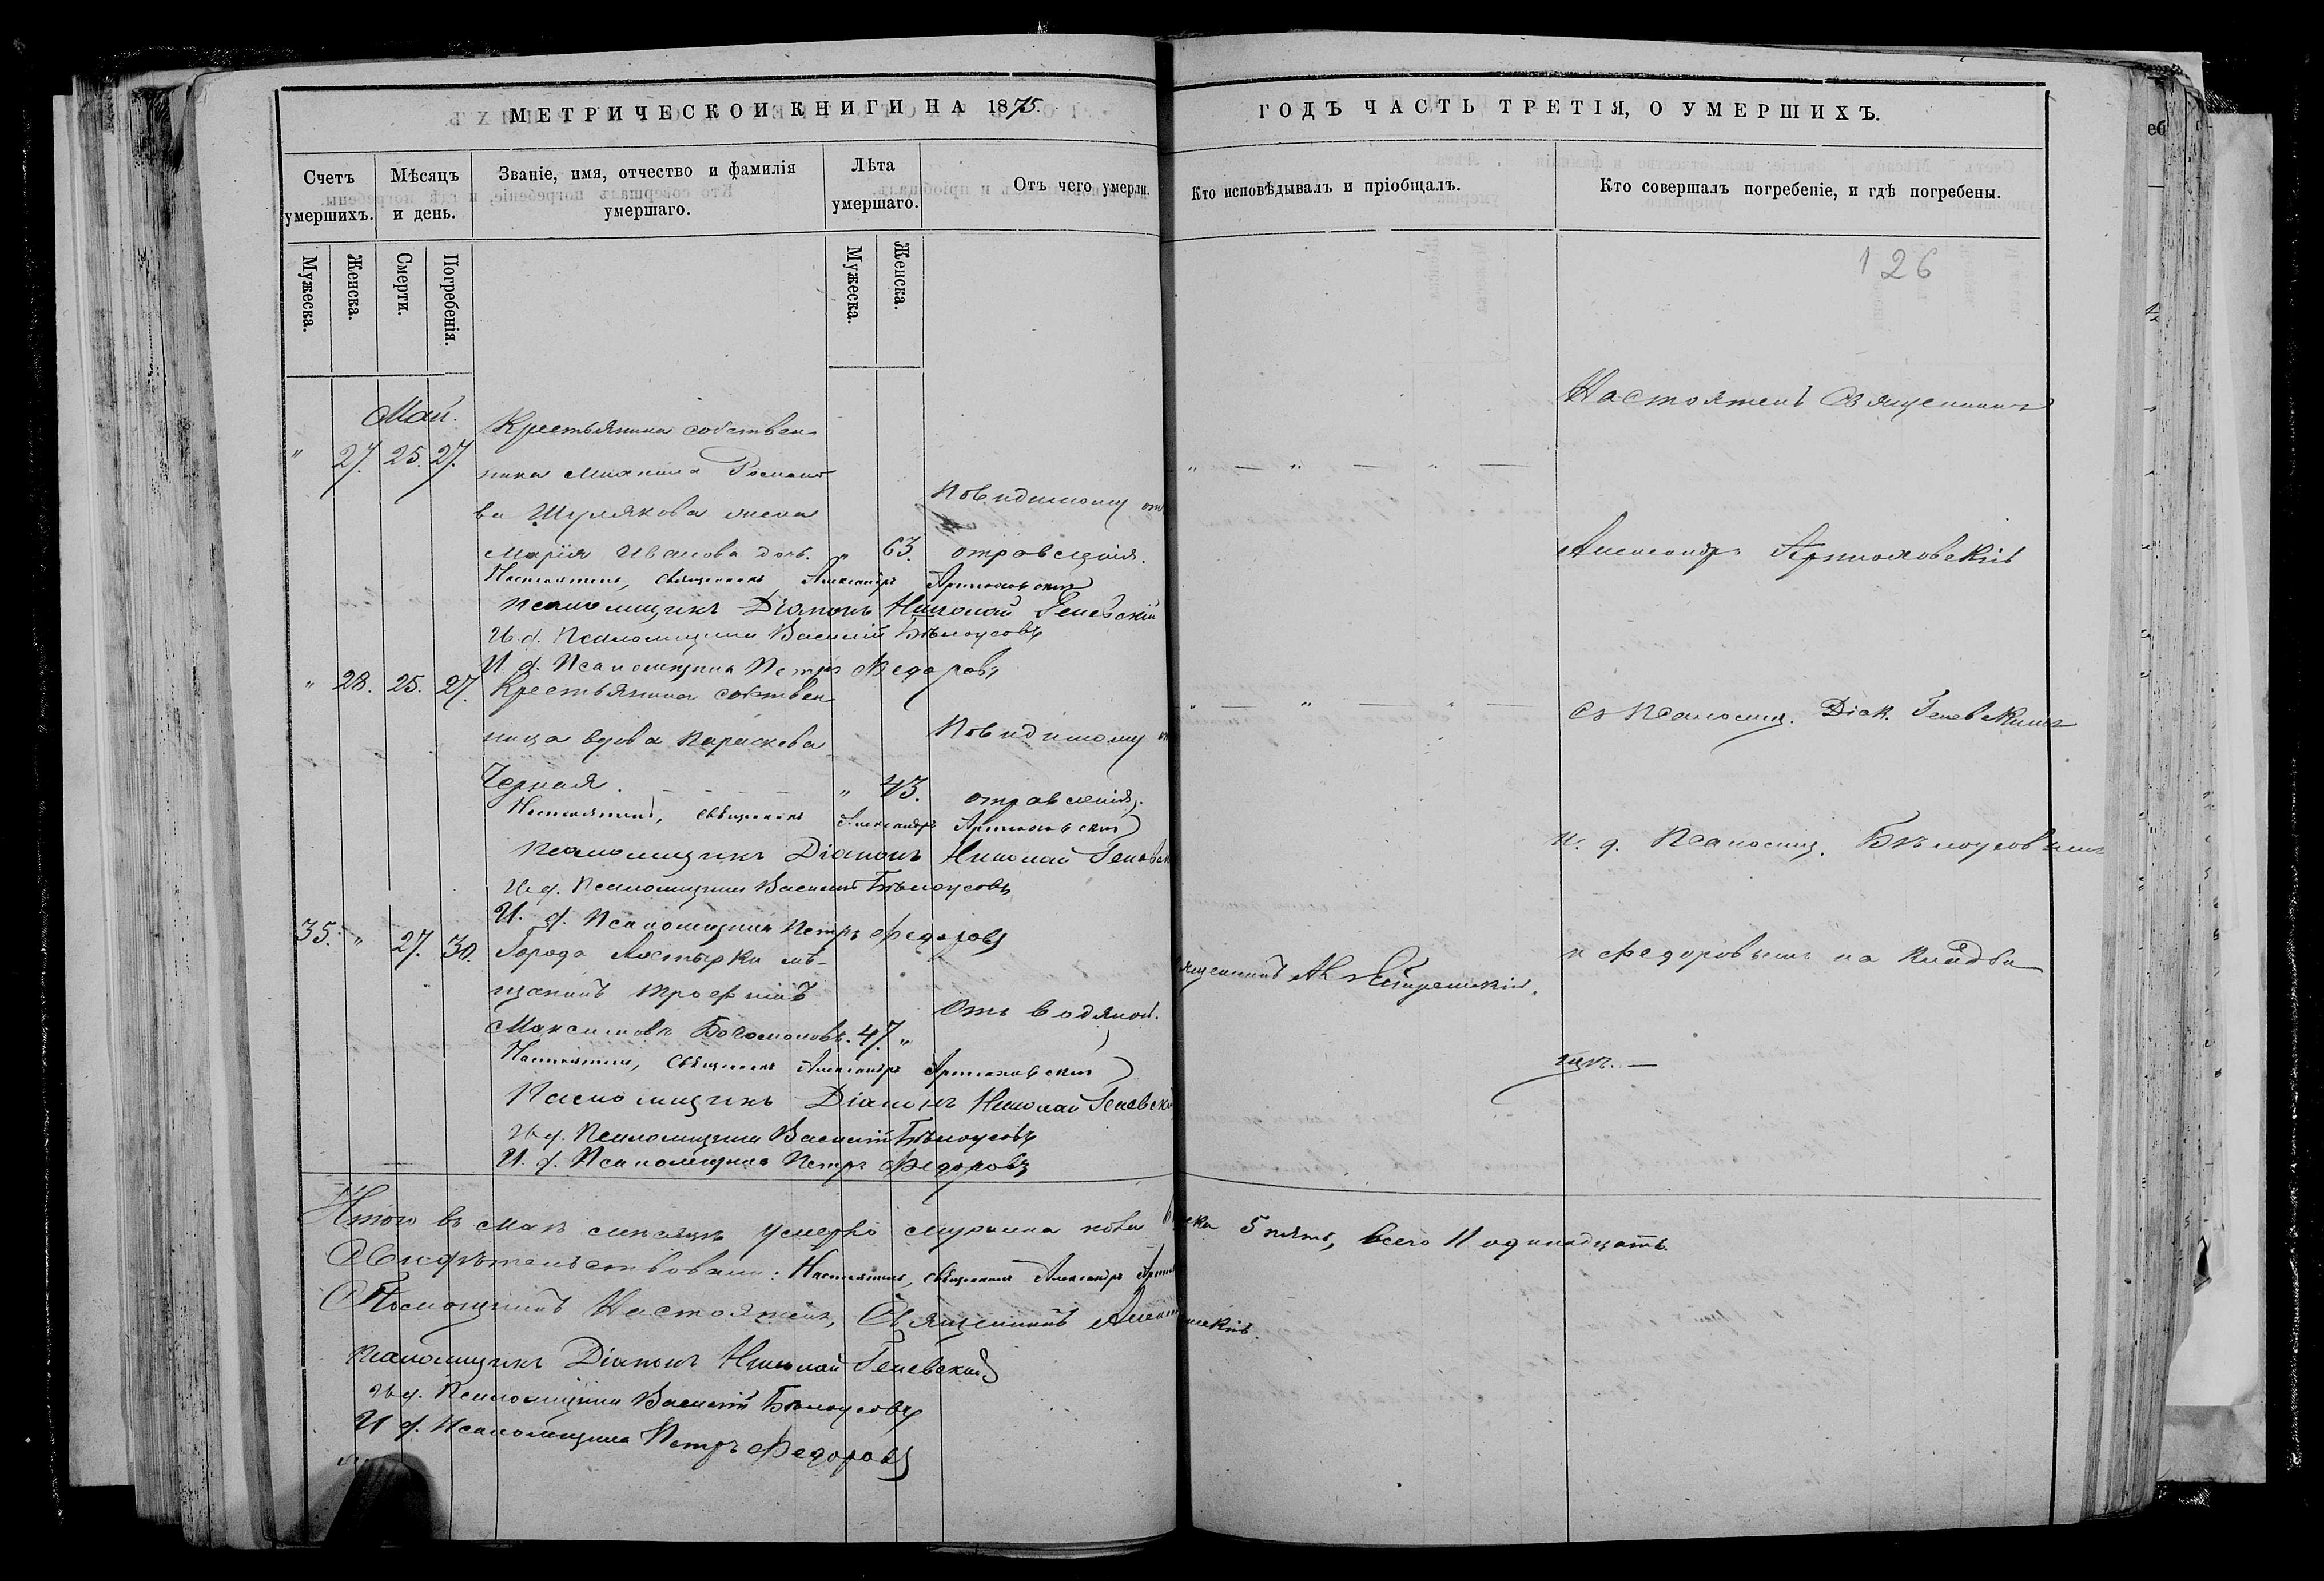 МЕТРИЧЕСКОЙ КНИГИ НА 1875.
ГОДЪ ЧАСТЬ ТРЕТІЯ, О УМЕРШИХЪ.
Счетъ умершихъ.
Мѣсяцъ и день.
Званіе, имя, отчество и фамилія умершаго.
Лѣта умершаго.
Отъ чего умерли.
Кто исповѣдывалъ и пріобщалъ.
Кто совершалъ погребеніе, и гдѣ погребены.
Мужеска.
Женска.
Смерти.
Погребенія.
Мужеска.
Женска.
126
Май.
" 27. 25. 27.
Крестьянина собствен
ника Михаила Романо
ва Шулякова жена
Марія Иванова дочь. " 63.
Повидимому отъ
отравленія.
" — " — " —
Настоятель, Священникъ Александръ
Псаломщикъ Діаконъ Николай Геневскій
И. д. Псаломщика Василій Бѣлоусовъ
И. д. Псаломщика Петръ Федоровъ
" 28. 25. 27.
Крестьянина собствен
ница вдова Параскева
Черная. " 43.
Повидимому
отравленія.
" — " — " —
Настоятель, Священникъ Александръ
Псаломщикъ Діаконъ Николай
И. д. Псаломщика Василій Бѣлоусовъ
И. д. Псаломщика Петръ Федоровъ
35. " 27. 30.
Города Ахтырки мѣ-
щанинъ Трофимъ
Максимовъ Богомоловъ. 47. "
Отъ водяной.
Настоятель, Священникъ Александръ
Псаломщикъ Діаконъ Николай
И. д. Псаломщика Василій Бѣлоусовъ
И. д. Псаломщика Петръ Федоровъ
Настоятель Священникъ
Александръ
съ Псаломщ. Діак. Геневскимъ
и. д. Псаломщ. Бѣлоусовымъ
и Федоровымъ на кладби
щѣ. —
Итого въ маѣ мѣсяцѣ умерло мужеска пола 5 пять, всего 11 одинадцать.
Свидѣтельствовали: Настоятель, Священникъ Александръ
Помощникъ Настоятеля, Священникъ
Псаломщикъ Діаконъ Николай Геневскій
И. д. Псаломщика Василій Бѣлоусовъ
И. д. Псаломщика Петръ Федоровъ